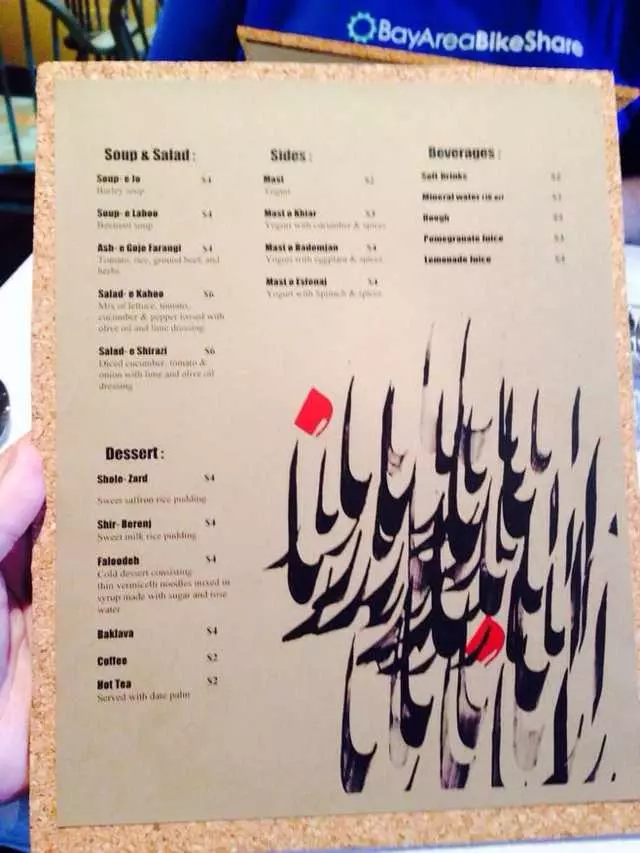 BayAreaBikeShare
Soup & Salad :
Soup- e Jo $4
Barley soup
Soup- e Laboo $4
Beetroot soup
Ash- e Goje Farangi $4
Tomato, rice, ground beef, and
herbs
Salad- e Kahoo $6
Mix of lettuce, tomato,
cucumber & pepper tossed with
olive oil and lime dressing
Salad- e Shirazi $6
Diced cucumber, tomato &
onion with lime and olive oil
dressing
Dessert :
Shole- Zard $4
Sweet saffron rice pudding
Shir- Berenj $4
Sweet milk rice pudding
Faloodeh $4
Cold dessert consisting
thin vermicelli noodles mixed in
syrup made with sugar and rose
water
Baklava $4
Coffee $2
Hot Tea $2
Served with date palm
Sides :
Mast $2
Yogurt
Mast o Khiar $3
Yogurt with cucumber & spices
Mast o Bademjan $4
Yogurt with eggplant & spices
Mast o Esfenaj $4
Yogurt with Spinach & spices
Beverages :
Soft Drinks $2
Mineral water
Doogh
Pomegranate Juice $3
Lemonade Juice